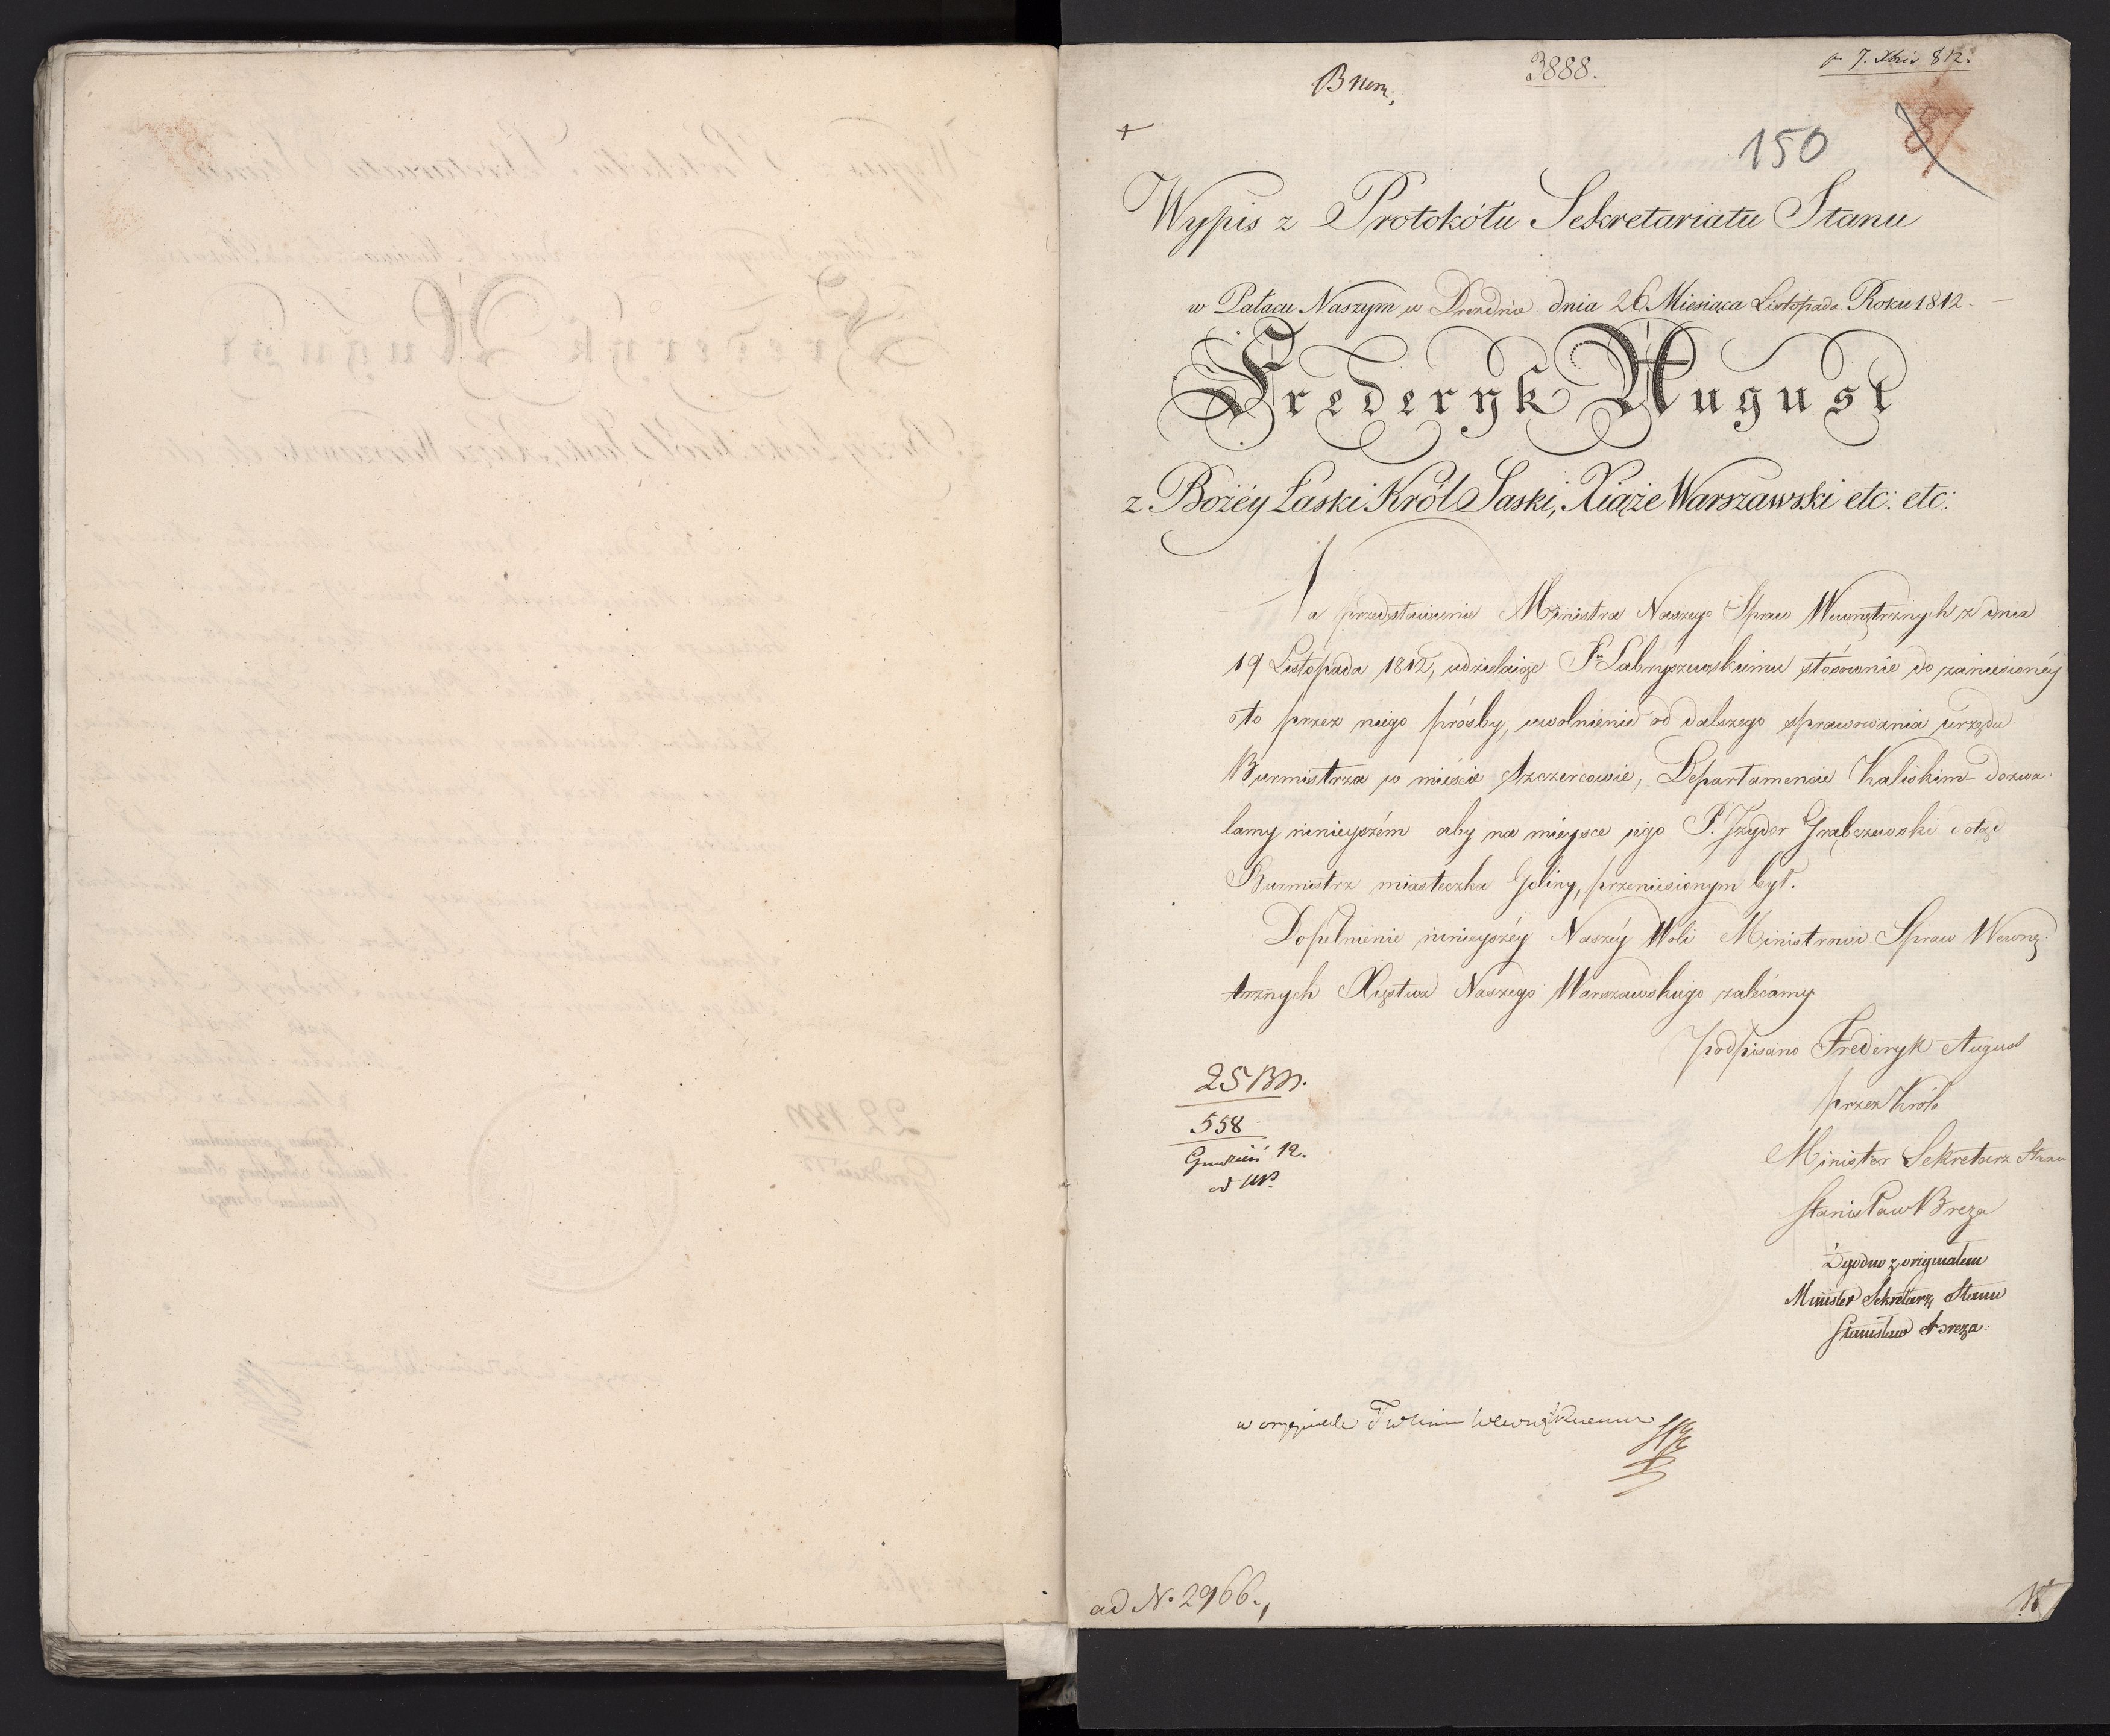 3888.
150
87
Wypis z Protokółu Sekretariatu Stanu
w Pałacu Naszym w Dreźnie dnia 26 Miesiąca Listopada Roku 1812
Frederyk August
z Bożéy Łaski Król Saski, Xiąże Warszawski etc: etc:
Na przedstawienie Ministra Naszego Spraw Wewnętrznych z dnia
19 Listopada 1812, udzielaiąc stósownie do zaniesionéy
oto przez niego prośby, uwolnienie od dalszego sprawowania urzędu
Burmistrza w mieście Szczercowie, Departamencie Kaliskim dozwa-
lamy ninieyszém aby na mieysce iego P. Izydor Grabczewski dotąd
Burmistrz miasteczka Goliny, przeniesionym był.
Dopełnienie ninieyszéy Naszéy Woli Ministrowi Spraw Wewnę-
trznych Xięstwa Naszego Warszawskiego zalécamy
podpisano Frederyk August
przez Króla
Minister Sekretarz Stanu
Stanisław Breza
Zgodno z originałem
Minister Sekretarz Stanu
Stanisław Breza.
558
Grudzień 12.
ad N. 2966.